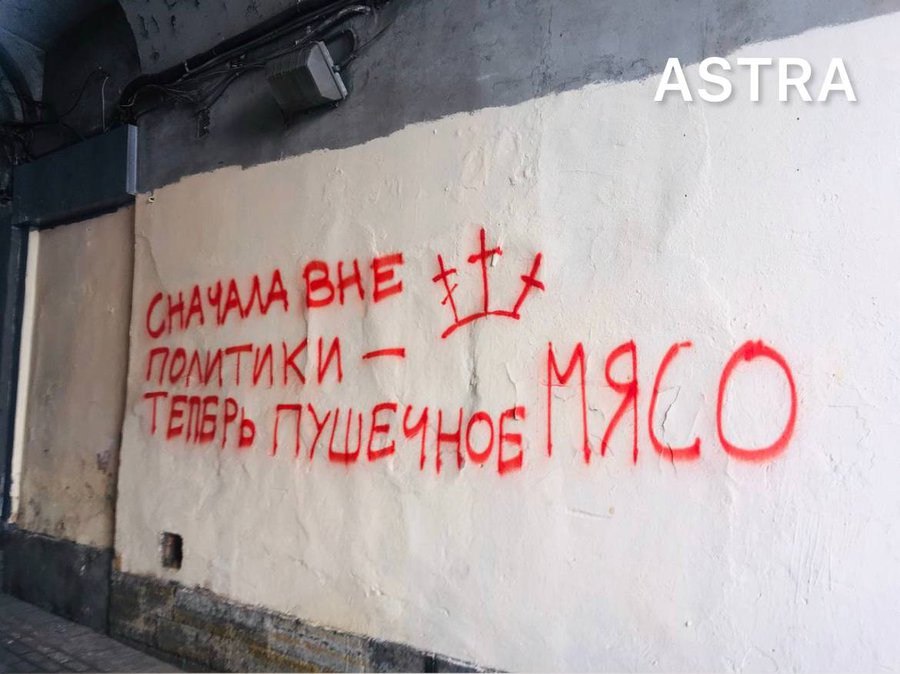 ASTRA
СНАЧАЛА ВНЕ
ПОЛИТИКИ –
ТЕПЕРЬ ПУШЕЧНОЕ МЯСО